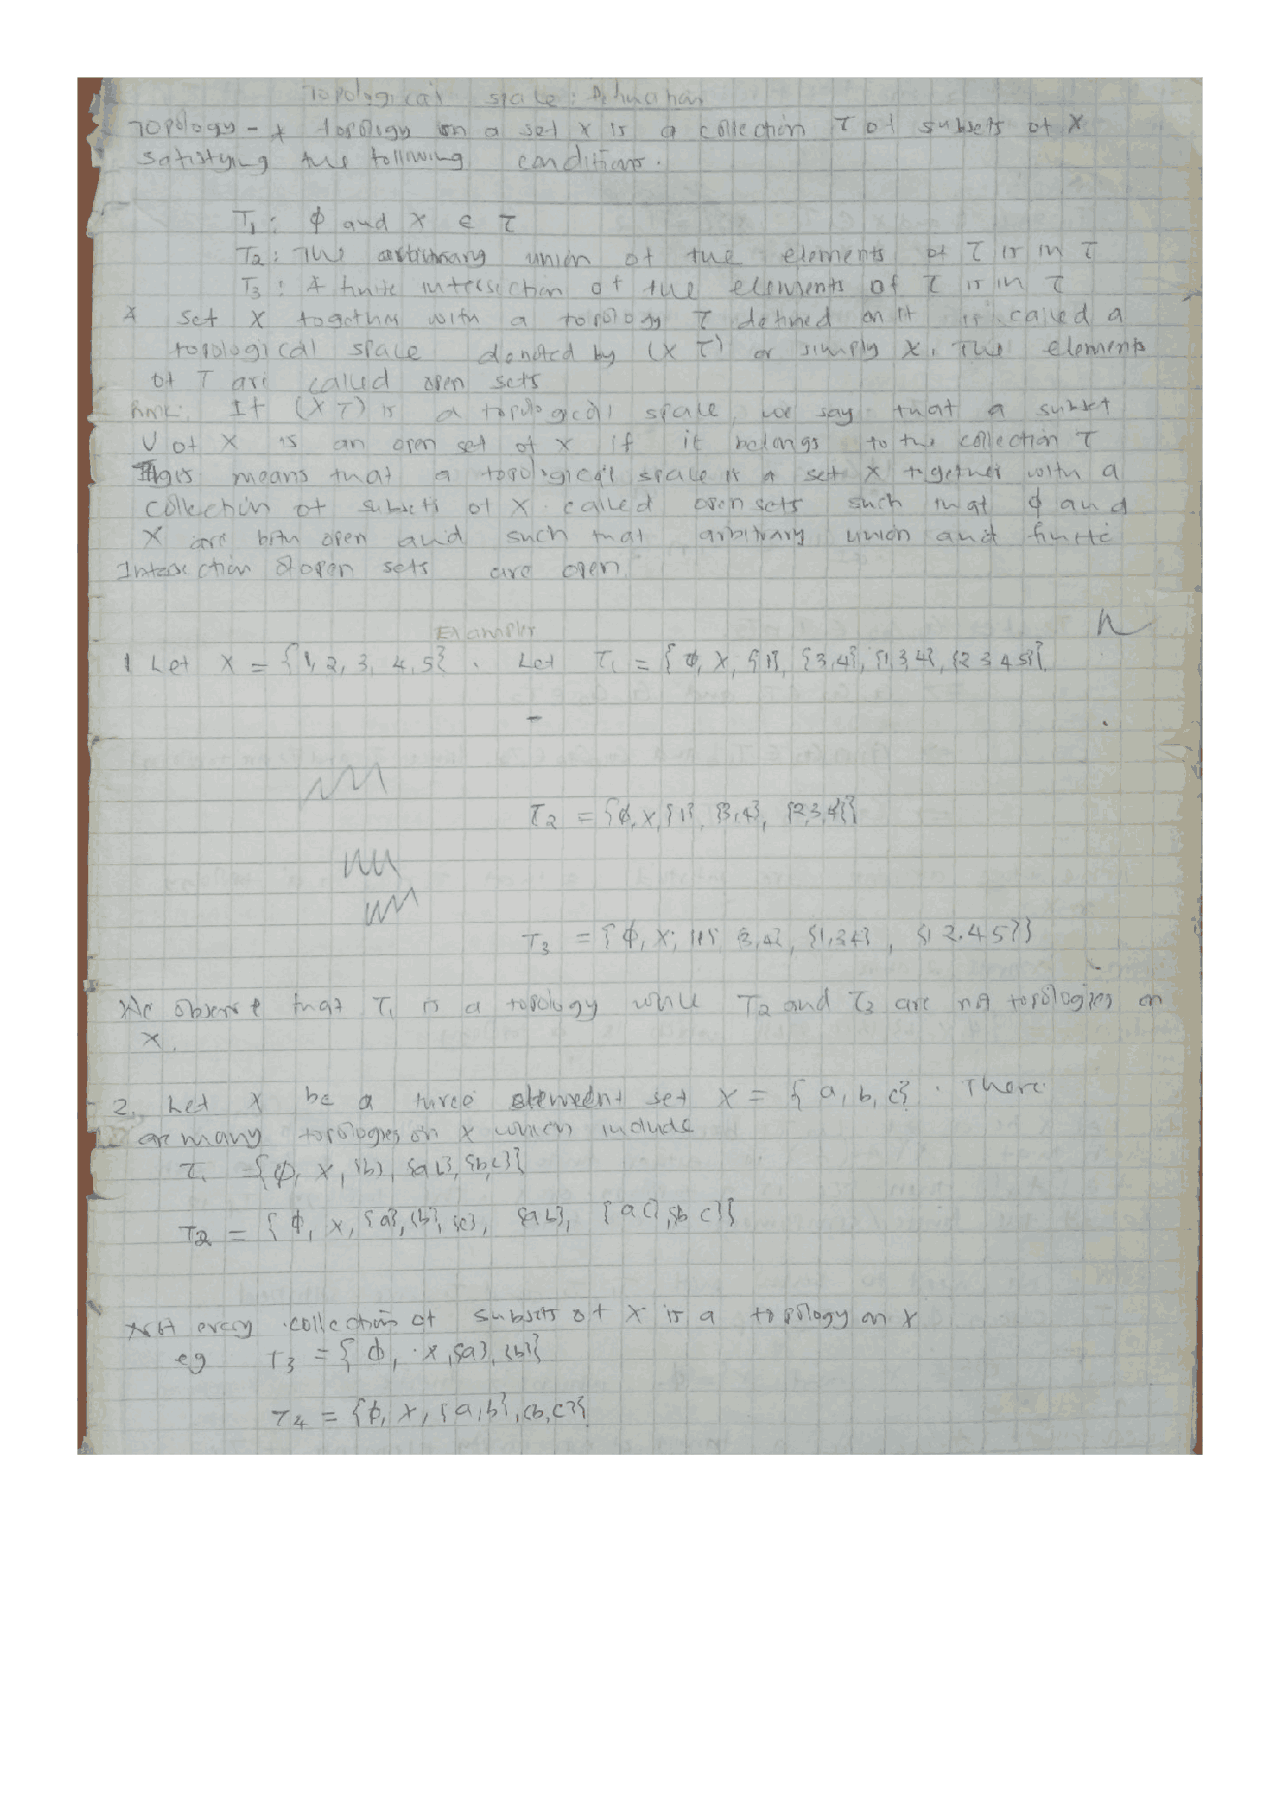 Topological space: Definition
Topology - A topology on a set X is a collection τ of subsets of X
satisfying the following conditions.
T₁: ϕ and X ∈ τ
T₂: The arbitrary union of the elements of τ is in τ
T₃: A finite intersection of the elements of τ is in τ
A set X together with a topology τ defined on it is called a
topological space denoted by (X τ) or simply X. The elements
of τ are called open sets
Rmk: If (X τ) is a topological space, we say that a subset
U of X is an open set of X if it belongs to the collection τ
means that a topological space is a set X together with a
collection of subsets of X called open sets such that ϕ and
X are both open and such that arbitrary union and finite
Intersection of open sets are open.
Examples
1 Let X = {1, 2, 3, 4, 5}. Let τ₁ = {ϕ, X, {1}, {3,4}, {1,3,4}, {2 3 4 5}}.
τ₂ = {ϕ, X, {1}, {3,4}, {2,3,4}}
τ₃ = {ϕ, X, {1} {3,4}, {1,3 4}, {1 2.4 5}}
We observe that τ₁ is a topology while τ₂ and τ₃ are not topologies on
X.
2. Let X be a three element set X = {a, b, c}. There
are many topologies on X which include
τ₁ = {ϕ, X, {b}, {a b}, {b,c}}
τ₂ = {ϕ, X, {a}, {b}, {c}, {a b}, {a c}, {b c}}
Not every collection of subsets of X is a topology on X
eg τ₃ = {ϕ, X, {a}, {b}}
τ₄ = {ϕ, X, {a, b}, {b, c}}